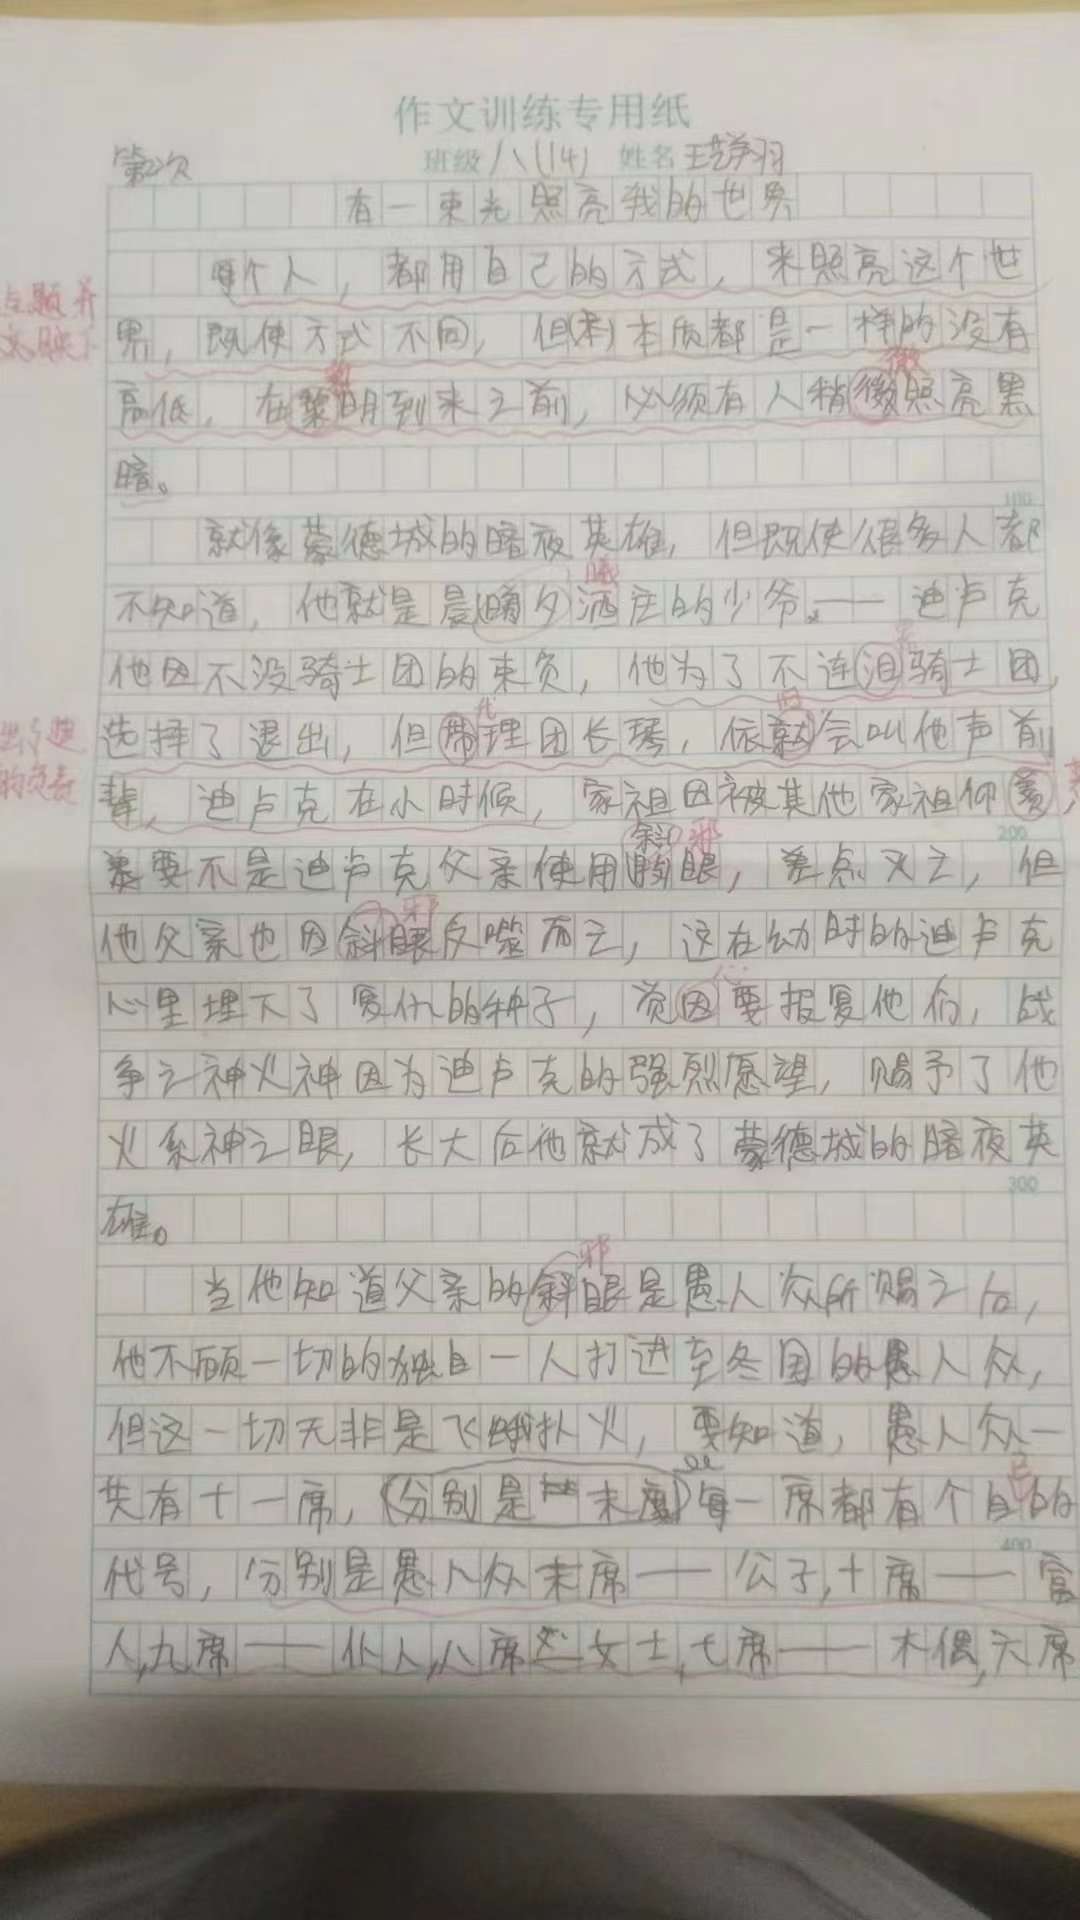 作文训练专用纸
第2次 班级 八(14) 姓名 王
有一束光照亮我的世界
每个人，都用自己的方式，来照亮这个世
点题并
界，既使方式不同，但(本)本质都是一样的没有
黎 微
高低，在黎明到来之前，必须有人稍微照亮黑
暗。
100
就像蒙德城的暗夜英雄，但既使很多人都
曦
不知道，他就是晨曦夕酒庄的少爷。——迪卢克
他因不没骑士团的束负，他为了不连泪骑士团，
代 旧
选择了退出，但带理团长琴，依就会叫他声前
的负责
辈，迪卢克在小时候，家祖因被其他家祖仰羡，
200
斜 邪
羡要不是迪卢克父亲使用眼，差点灭亡，但
邪
他父亲也因斜眼反噬而亡，这在幼时的迪卢克
心里埋下了复仇的种子，觉因要报复他们，战
争之神火神因为迪卢克的强烈愿望，赐予了他
火系神之眼，长大后他就成了蒙德城的暗夜英
300
雄。
邪
当他知道父亲的斜眼是愚人众所赐之后，
他不顾一切的独自一人打进至冬国的愚人众，
但这一切无非是飞蛾扑火，要知道，愚人众一
己
共有十一席，(分别是末席)每一席都有个自的
400
代号，分别是愚人众末席——公子,十席——富
人,九席——仆人,八席——女士,七席——木偶,六席